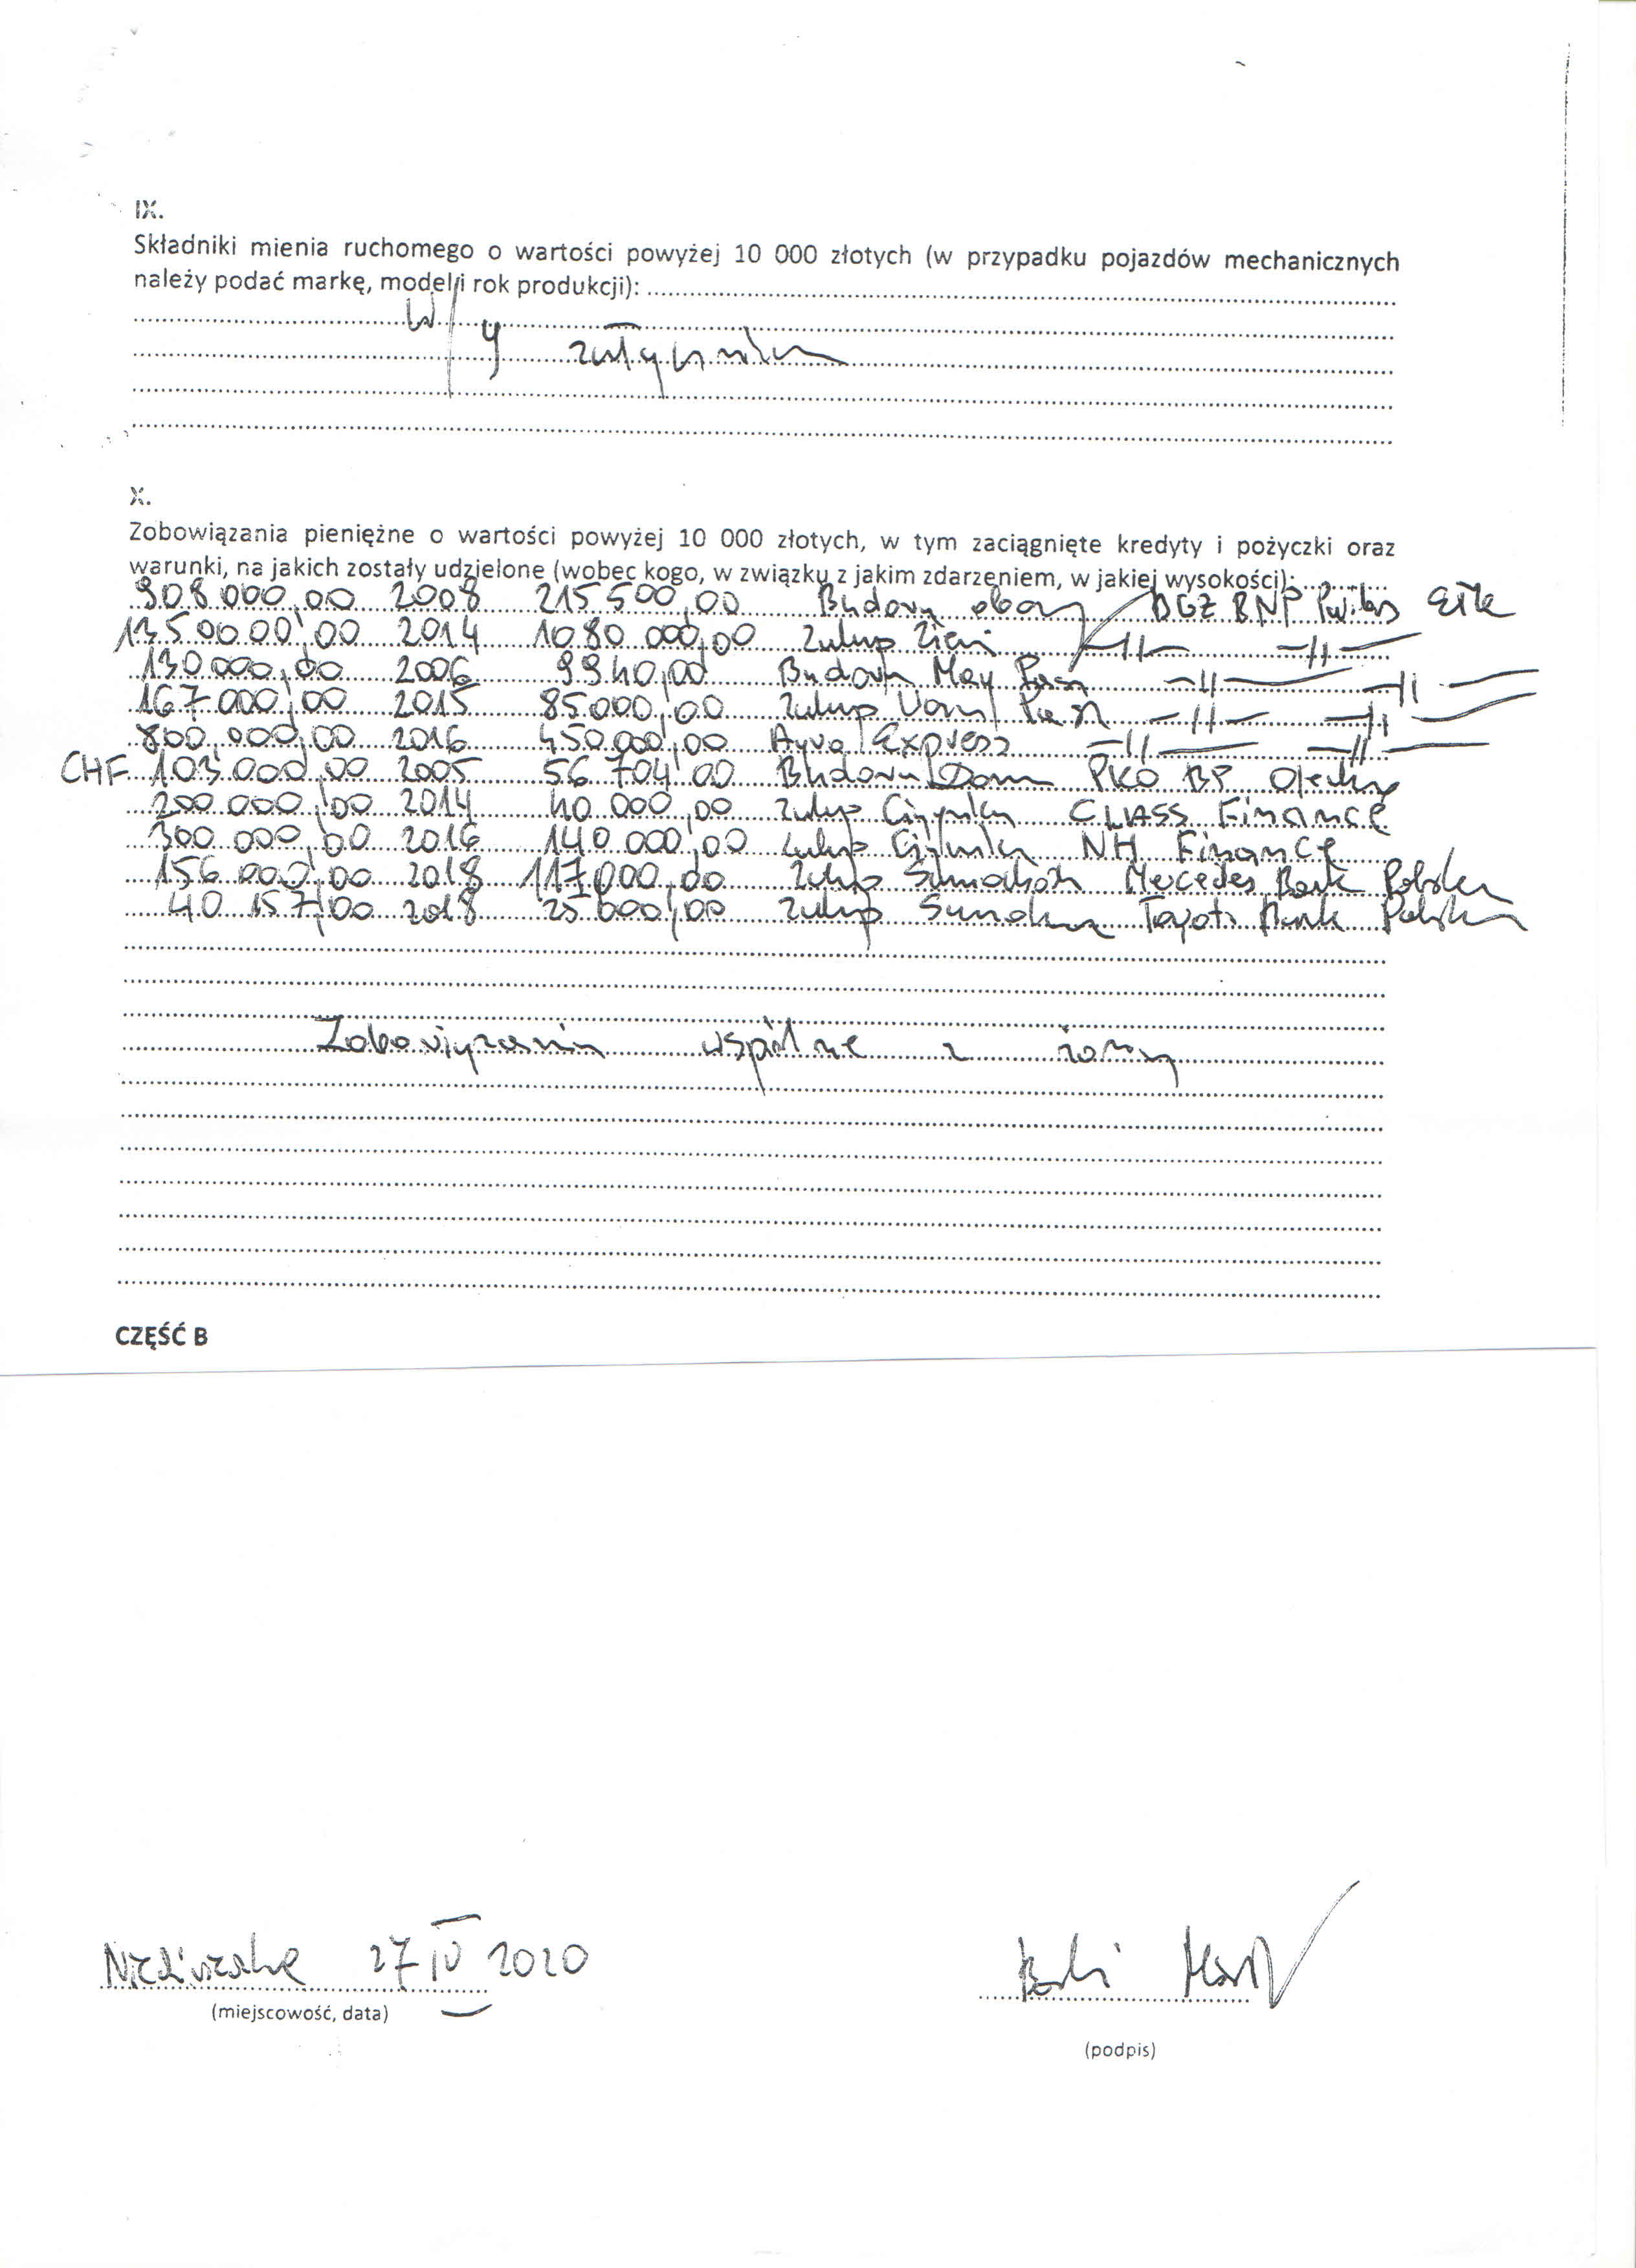 IX.
Składniki mienia ruchomego o wartości powyżej 10 000 złotych (w przypadku pojazdów mechanicznych
należy podać markę, model i rok produkcji):
w/g załącznika
X.
Zobowiązania pieniężne o wartości powyżej 10 000 złotych, w tym zaciągnięte kredyty i pożyczki oraz
warunki, na jakich zostały udzielone (wobec kogo, w związku z jakim zdarzeniem, w jakiej wysokości):
908 000,00 2008 215 500,00 Budowa obory BGŻ BNP Paribas Ełk
1350000,00 2014 1080 000,00 Zakup Ziemi -//- -//-
130 000,00 2006 9940,00 Budowa -//- -//-
167 000,00 2015 85 000,00 Zakup -//- -//-
800 000,00 2016 450 000,00 Express -//- -//-
CHF 103 000,00 2005 56 704,00 Budowa Domu PKO BP Olecko
200 000,00 2014 40 000,00 Zakup Ciągnika CLASS Finance
300 000,00 2016 140 000,00 Zakup Ciągnika NH Finance
156 000,00 2018 117 000,00 Zakup Samochodu Mercedes Bank Polska
40 157,00 2018 25 600,00 Zakup Toyota Bank Polska
Zobowiązania wspólne z żoną
CZĘŚĆ B
27 IV 2020
(miejscowość, data)
(podpis)